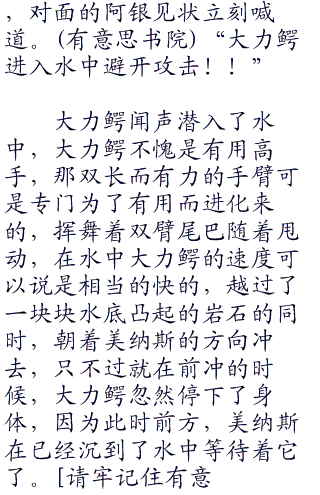 ，对面的阿银见状立刻喊
道。(有意思书院) “大力鳄
进入水中避开攻击！！”
大力鳄闻声潜入了水
中，大力鳄不愧是有用高
手，那双长而有力的手臂可
是专门为了有用而进化来
的，挥舞着双臂尾巴随着甩
动，在水中大力鳄的速度可
以说是相当的快的，越过了
一块块水底凸起的岩石的同
时，朝着美纳斯的方向冲
去，只不过就在前冲的时
候，大力鳄忽然停下了身
体，因为此时前方，美纳斯
在已经沉到了水中等待着它
了。[请牢记住有意